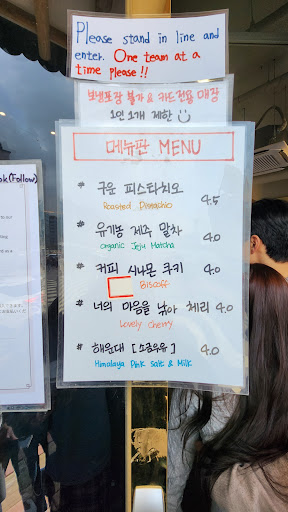 Please stand in line and
enter. One team at a
time please!!
보냉포장 불가 & 카드전용 매장
1인 1개 제한
메뉴판 MENU
# 구운 피스타치오 4.5
Roasted Pistachio
# 유기농 제주 말차 4.0
Organic Jeju Matcha
# 커피 시나몬 쿠키 4.0
Biscoff
# 너의 마음을 낚아 체리 4.0
Lovely Cherry
# 해운대 [소금우유] 4.0
Himalaya Pink Salt & Milk
ok(Follow)